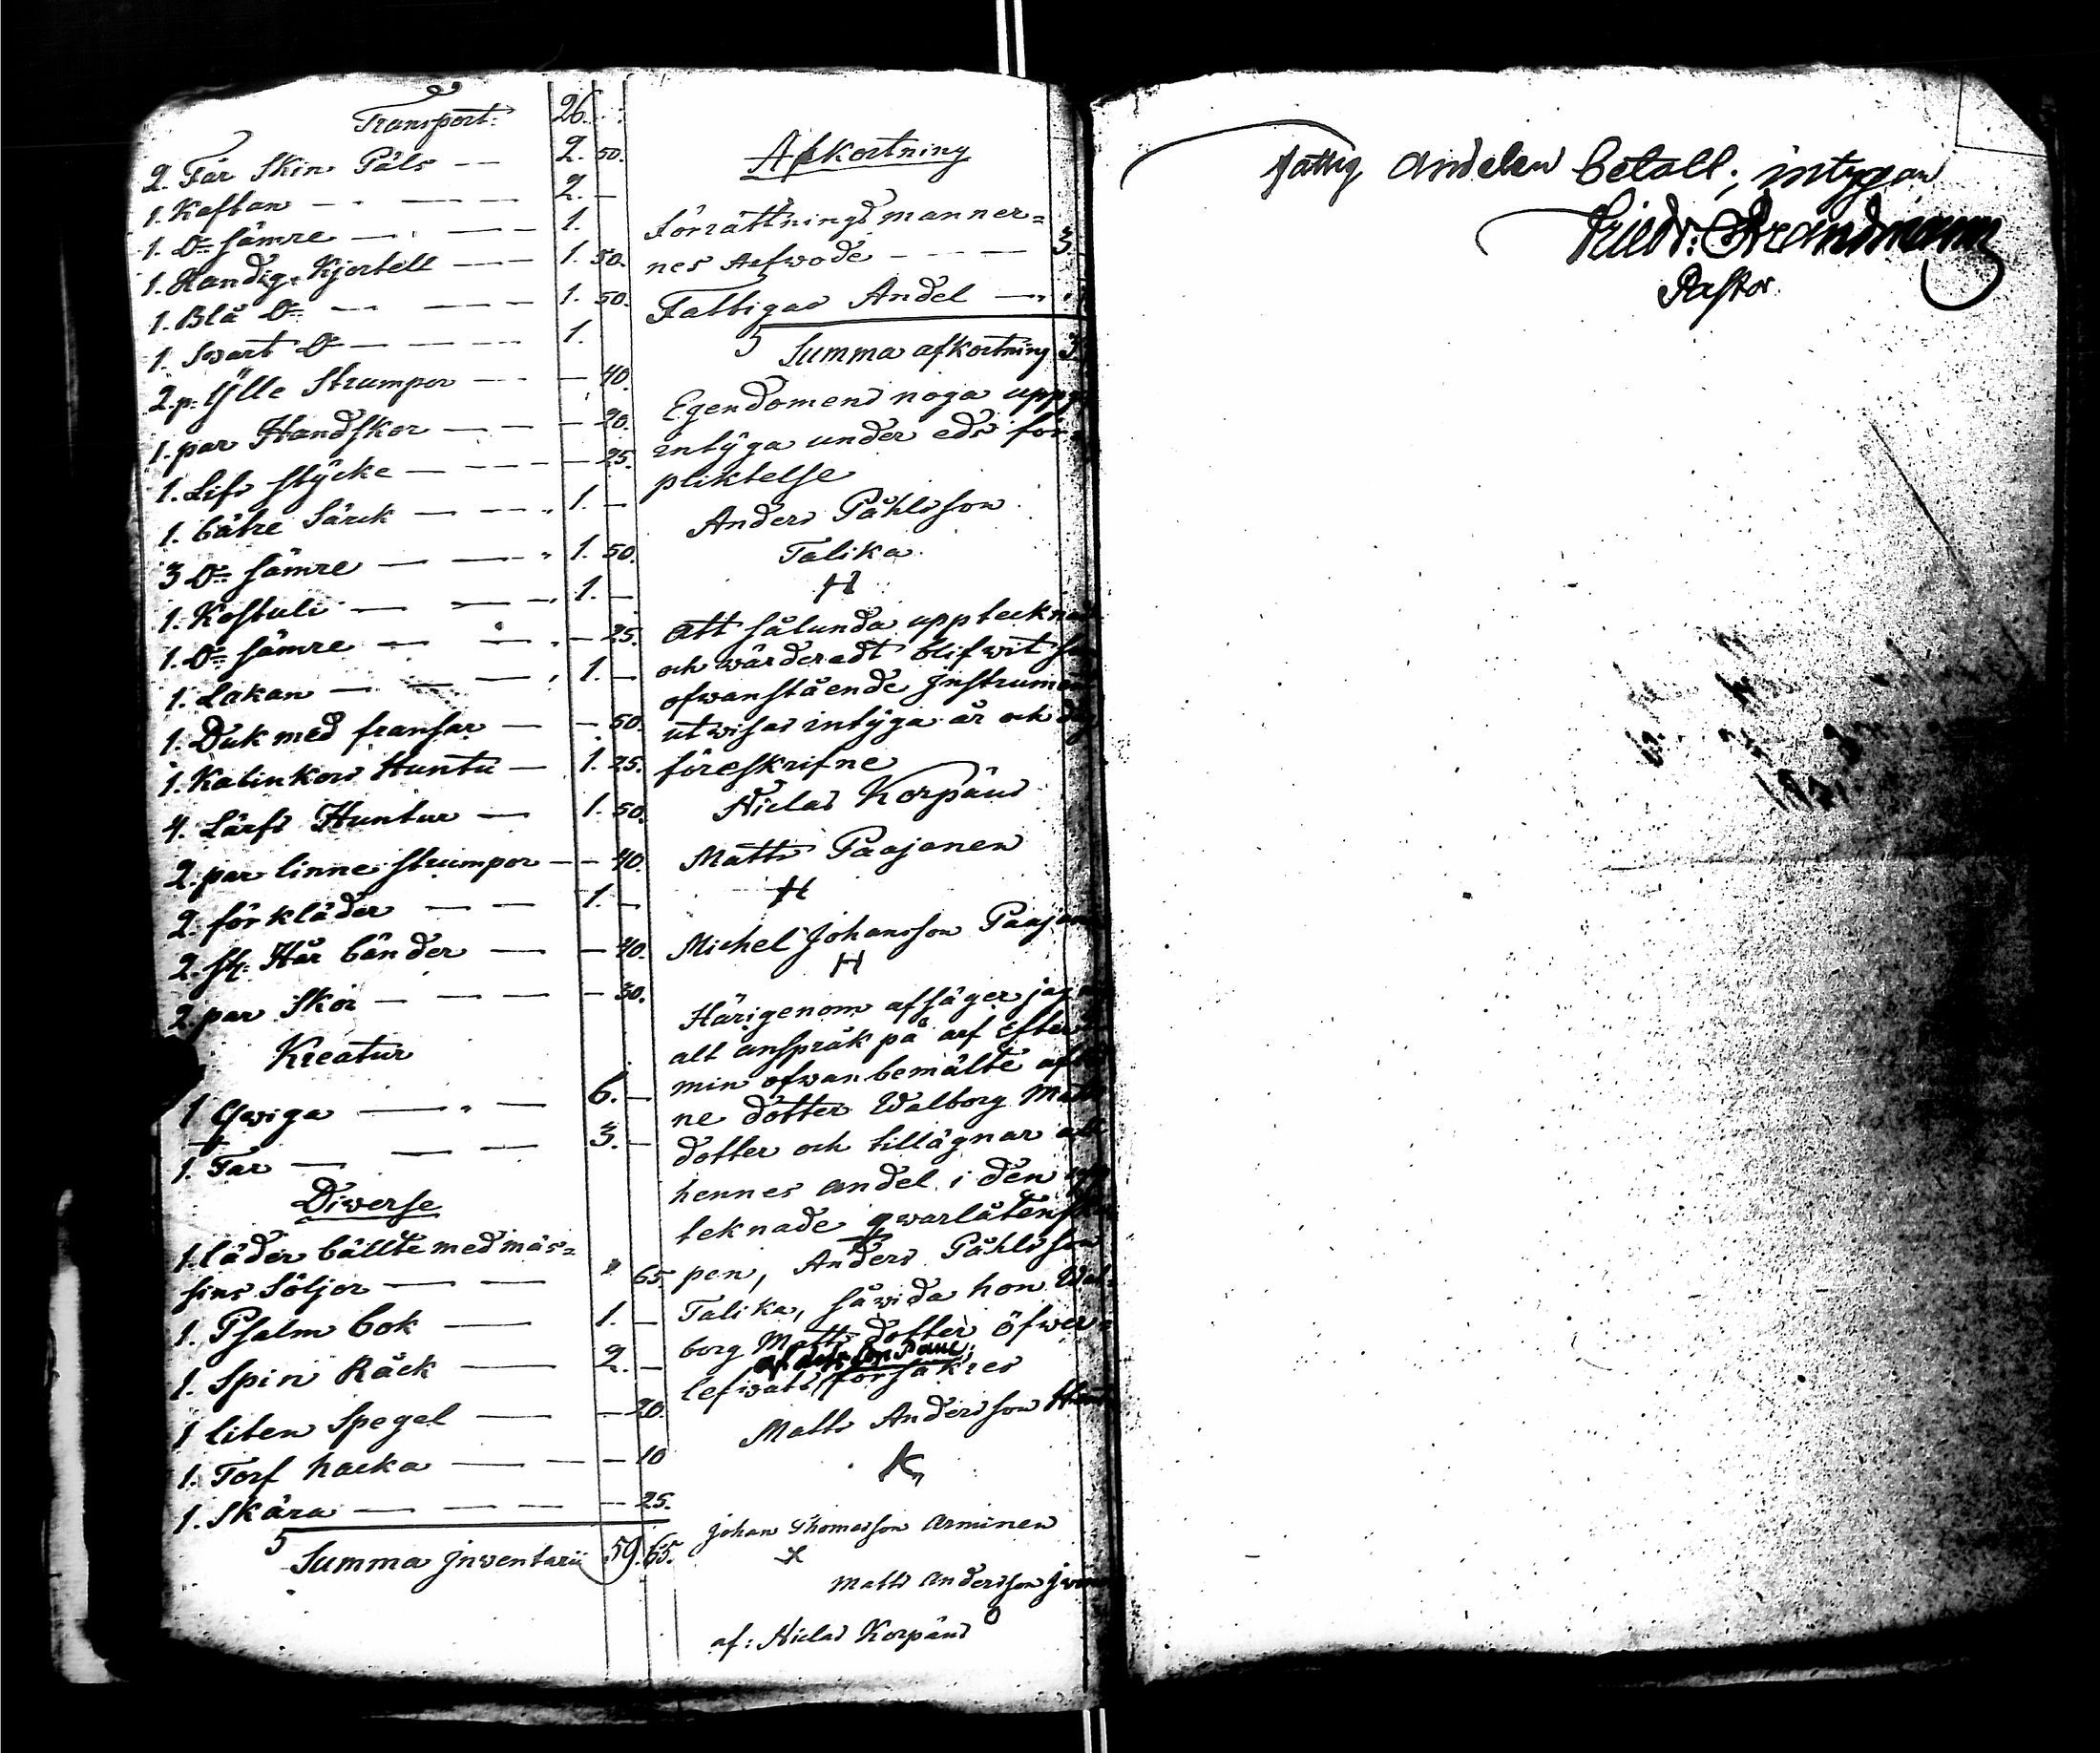 Transport. 26.
2. Får Skin Päls — 2. 50.
1. Kaftan — 2. —
1. Do sämre — 1.
1. Randig Kjortell — 1. 50.
1. Blå Do — 1. 50.
1. Svart Do — 1.
2. p: Ylle Strumpor — 40.
1. par Handskor — 20.
1. Lifs stycke — 25.
1. bätre Särck — 1. —
3 Do sämre — 1. 50.
1. Kostuli — 1. —
1. Do sämre — 25.
1. Lakan — 1. —
1. Duk med fransar — 50.
1. Kalinkors Huntu — 1. 25.
4. Lärfs Huntur — 1. 50.
2. par linne strumpor — 40.
2. förkläder — 1. —
2. st: Hår bänder — 40.
2 par Skor — 30.
Kreatur
1 Qwiga — 6. —
1. Får — 3. —
Diverse
1. läder bällte med mäs=
sins Söljor — " 65.
1. Psalm bok — 1. —
1. Spin Räck — 2. —
1 liten Spegel — 20.
1. Torf hacka — 10
1. Skära — 25.
S Summa Jnventarii 59. 65.
Afkortning
Förrättnings manner=
nes Arfwode — 3.
Fattigas Andel —
S Summa afkortning 3
Egendomens noga
intyga under eds för
pliktelse
Anders Påhlsson
Talika
H
Att sålunda uppteckna
och wärderadt blifwit
ofwanstående Jnstrument
utwisar intyga år och dag
föreskrifne
Niclas Korpäus
Matts Paajanen
H
Michel Johansson Paajanen
H
Härigenom afsäger jag
alt anspråk på arf efter
min ofwanbemälte
ne dotter Walborg Matts
dotter och tillägnar
hennes andel i den upp
teknade qwarlåtenska
pen, Anders Påhlsson
Talika, såwida hon Wal=
borg Matts dotter öfwer=
af dess son Paul;
lefwatt försäkres
Matts Andersson
K
Johan Thomasson Arminen
X
Matts Andersson
af: Niclas Korpäus O
Fattig Andelen betalt; intygar
Friedr: Strandmann
Pastor.